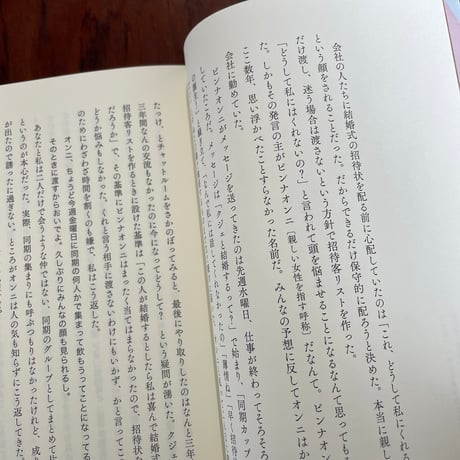 会社の人たちに結婚式の招待状を配る前に心配していたのは「これ、どうして私にくれ
という顔をされることだった。だからできるだけ保守的に配ろうと決めた。本当に親し
だけ渡し、迷う場合は渡さないという方針で招待客リストを作った。
「どうして私にはくれないの？」と言われて頭を悩ませることになるなんて思っても
た。しかもその発言の主がビンナオンニ［親しい女性を指す呼称］だなんて。ビンナオンニ
ここ数年、思い浮かべたことすらなかった名前だ。みんなの予想に反してオンニはか
会社に勤めていた。
ビンナオンニがメッセージを送ってきたのは先週水曜日、仕事が終わってそろそろ
していたころだ。メッセージは「クジェと結婚するって!!」で始まり、「同期カップ
「なんで私には話してくれなかったの」「薄情ね」「早く招待
たっけ、とチャットルームをさかのぼってみると、最後にやり取りしたのはなんと三年
三年間なんの交流もなかったのに今になってどうして？　という疑問が湧いた。クジェ
招待客リストを作るときに設けた基準は「この人が結婚するとしたら私は喜んで結婚式
だろうか」で、その基準にビンナオンニはまったく当てはまらなかったので、招待状
どうか悩みもしなかった。くれと言う相手に渡さないわけにもいかず、かと言ってこ
のためにわざわざ時間を割くのも嫌で、私はこう返した。
オンニ、ちょうど今週金曜日に同期の何人かで集まって飲もうってことになってる
そのときに渡すからおいでよ。久しぶりにみんなの顔も見られるし。
あなたと私は二人だけで会うような仲ではない。同期のグループとしてまとめて
というのが本心だった。実際、同期の集まりにも呼ぶつもりはなかったけれど、成り
が出たので誘ったに過ぎない。ところがオンニは人の気も知らずにこう返してきた。